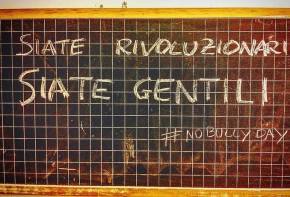 SIATE RIVOLUZIONARI
SIATE GENTILI
#NOBULLYDAY